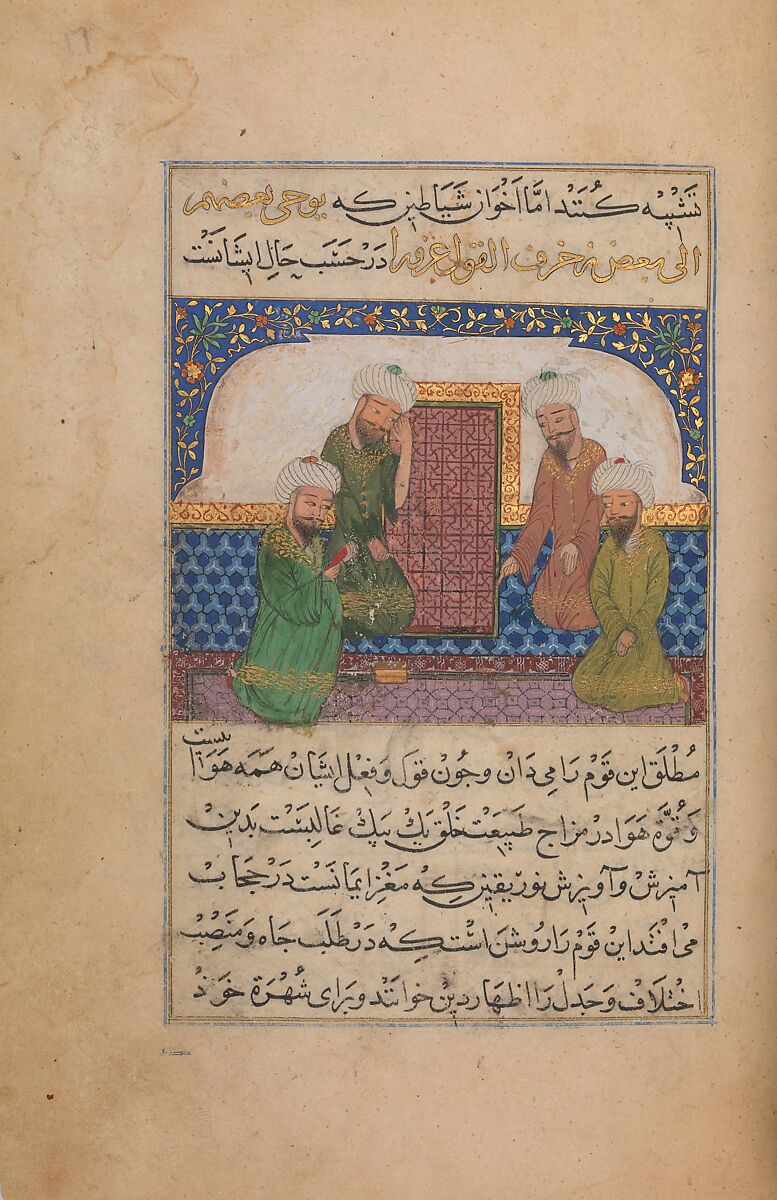 تشبیه کنند اما اخوان شیاطین که یوحی بعضهم
الی بعض زخرف القول غرورا در حسب حال ایشانست
مطلق این قوم را می دان وچون قول وفعل ایشان همه هوا
یست
وقوة هوا در مزاج طبیعت خلق یک بیک غالبست بدین
آمیزش وآویزش نور یقین که مغز ایمانست در حجاب
می افتد این قوم را روشن است که در طلب جاه ومنصب
اختلاف وجدل را اظهار دین خوانند وبرای شهرة خوذ